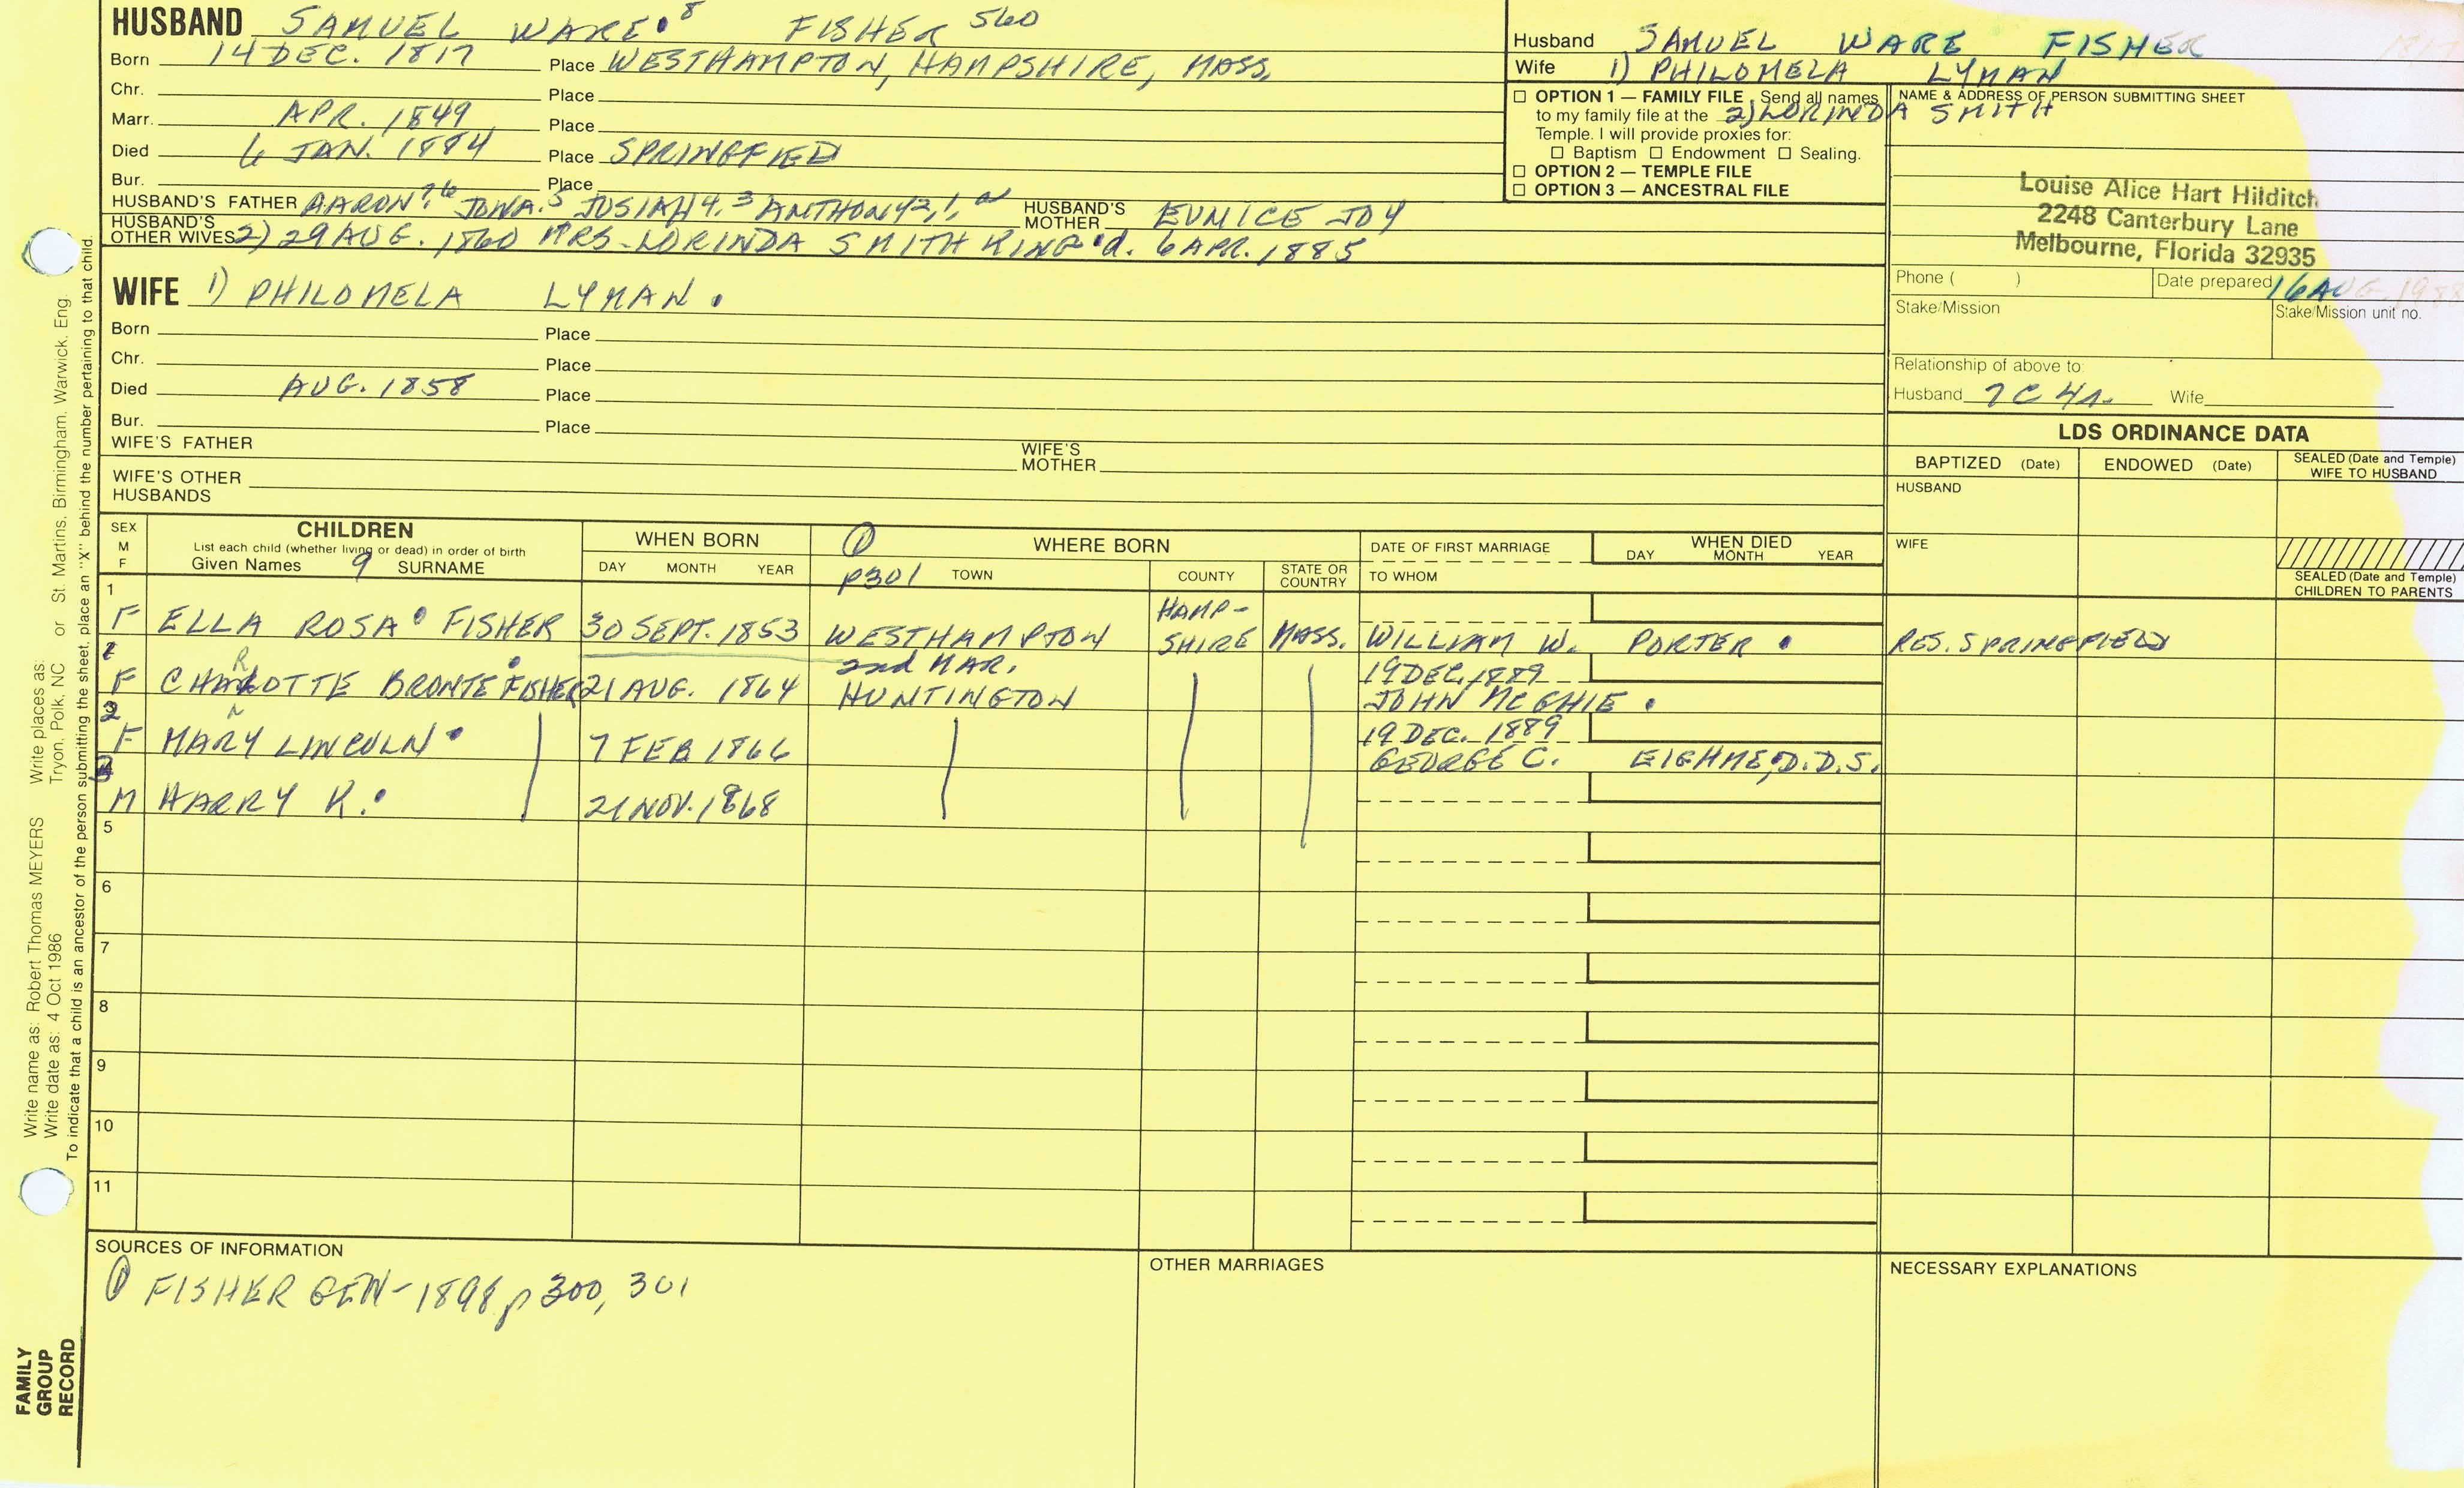 HUSBAND SAMUEL WARE 8 FISHER 560
Born 14 DEC. 1817 Place WESTHAMPTON, HAMPSHIRE, MASS.
Chr. Place
Marr. APR. 1849 Place
Died 6 JAN. 1884 Place SPRINGFIED
Bur. Place
HUSBAND'S FATHER AARON 7.6 JONA. 5 JOSIAH 4. 3 ANTHONY 2, 1. HUSBAND'S MOTHER EUNICE JOY
HUSBAND'S OTHER WIVES 2) 29 AUG. 1860 MRS. LORINDA SMITH KING d. 6 APR. 1885
Husband SAMUEL WARE FISHER
Wife 1) PHILOMELA LYMAN
□ OPTION 1 — FAMILY FILE Send all names
to my family file at the 2) LORINDA SMITH
Temple. I will provide proxies for:
□ Baptism □ Endowment □ Sealing.
□ OPTION 2 — TEMPLE FILE
□ OPTION 3 — ANCESTRAL FILE
NAME & ADDRESS OF PERSON SUBMITTING SHEET
Louise Alice Hart Hilditch
2248 Canterbury Lane
Melbourne, Florida 32935
Phone ( ) Date prepared 16 AUG. 1988
Stake/Mission Stake/Mission unit no.
Relationship of above to:
Husband 7C 4R. Wife
WIFE 1) PHILOMELA LYMAN.
Born Place
Chr. Place
Died AUG. 1858 Place
Bur. Place
WIFE'S FATHER WIFE'S MOTHER
WIFE'S OTHER HUSBANDS
LDS ORDINANCE DATA
BAPTIZED (Date) ENDOWED (Date) SEALED (Date and Temple) WIFE TO HUSBAND
HUSBAND
WIFE
SEALED (Date and Temple) CHILDREN TO PARENTS
SEX M F CHILDREN WHEN BORN ① WHERE BORN DATE OF FIRST MARRIAGE WHEN DIED
List each child (whether living or dead) in order of birth
Given Names 9 SURNAME DAY MONTH YEAR p301 TOWN COUNTY STATE OR COUNTRY TO WHOM DAY MONTH YEAR
1 F ELLA ROSA FISHER 30 SEPT. 1853 WESTHAMPTON HAMP-SHIRE MASS. WILLIAM W. PORTER RES. SPRINGFIELD
2nd MAR.
1 F CHARLOTTE BRONTE FISHER 21 AUG. 1864 HUNTINGTON 19 DEC. 1889 JOHN McGHIE
2 F MARY LINCOLN 7 FEB 1866 19 DEC. 1889 GEORGE C. EIGHME, D.D.S.
3 M HARRY K. 21 NOV. 1868
5
6
7
8
9
10
11
SOURCES OF INFORMATION
① FISHER GEN-1898 p 300, 301
OTHER MARRIAGES
NECESSARY EXPLANATIONS
Write name as: Robert Thomas MEYERS Write places as: St. Martins, Birmingham, Warwick, Eng.
Write date as: 4 Oct 1986 Tryon, Polk, NC or
To indicate that a child is an ancestor of the person submitting the sheet, place an "X" behind the number pertaining to that child.
FAMILY
GROUP
RECORD